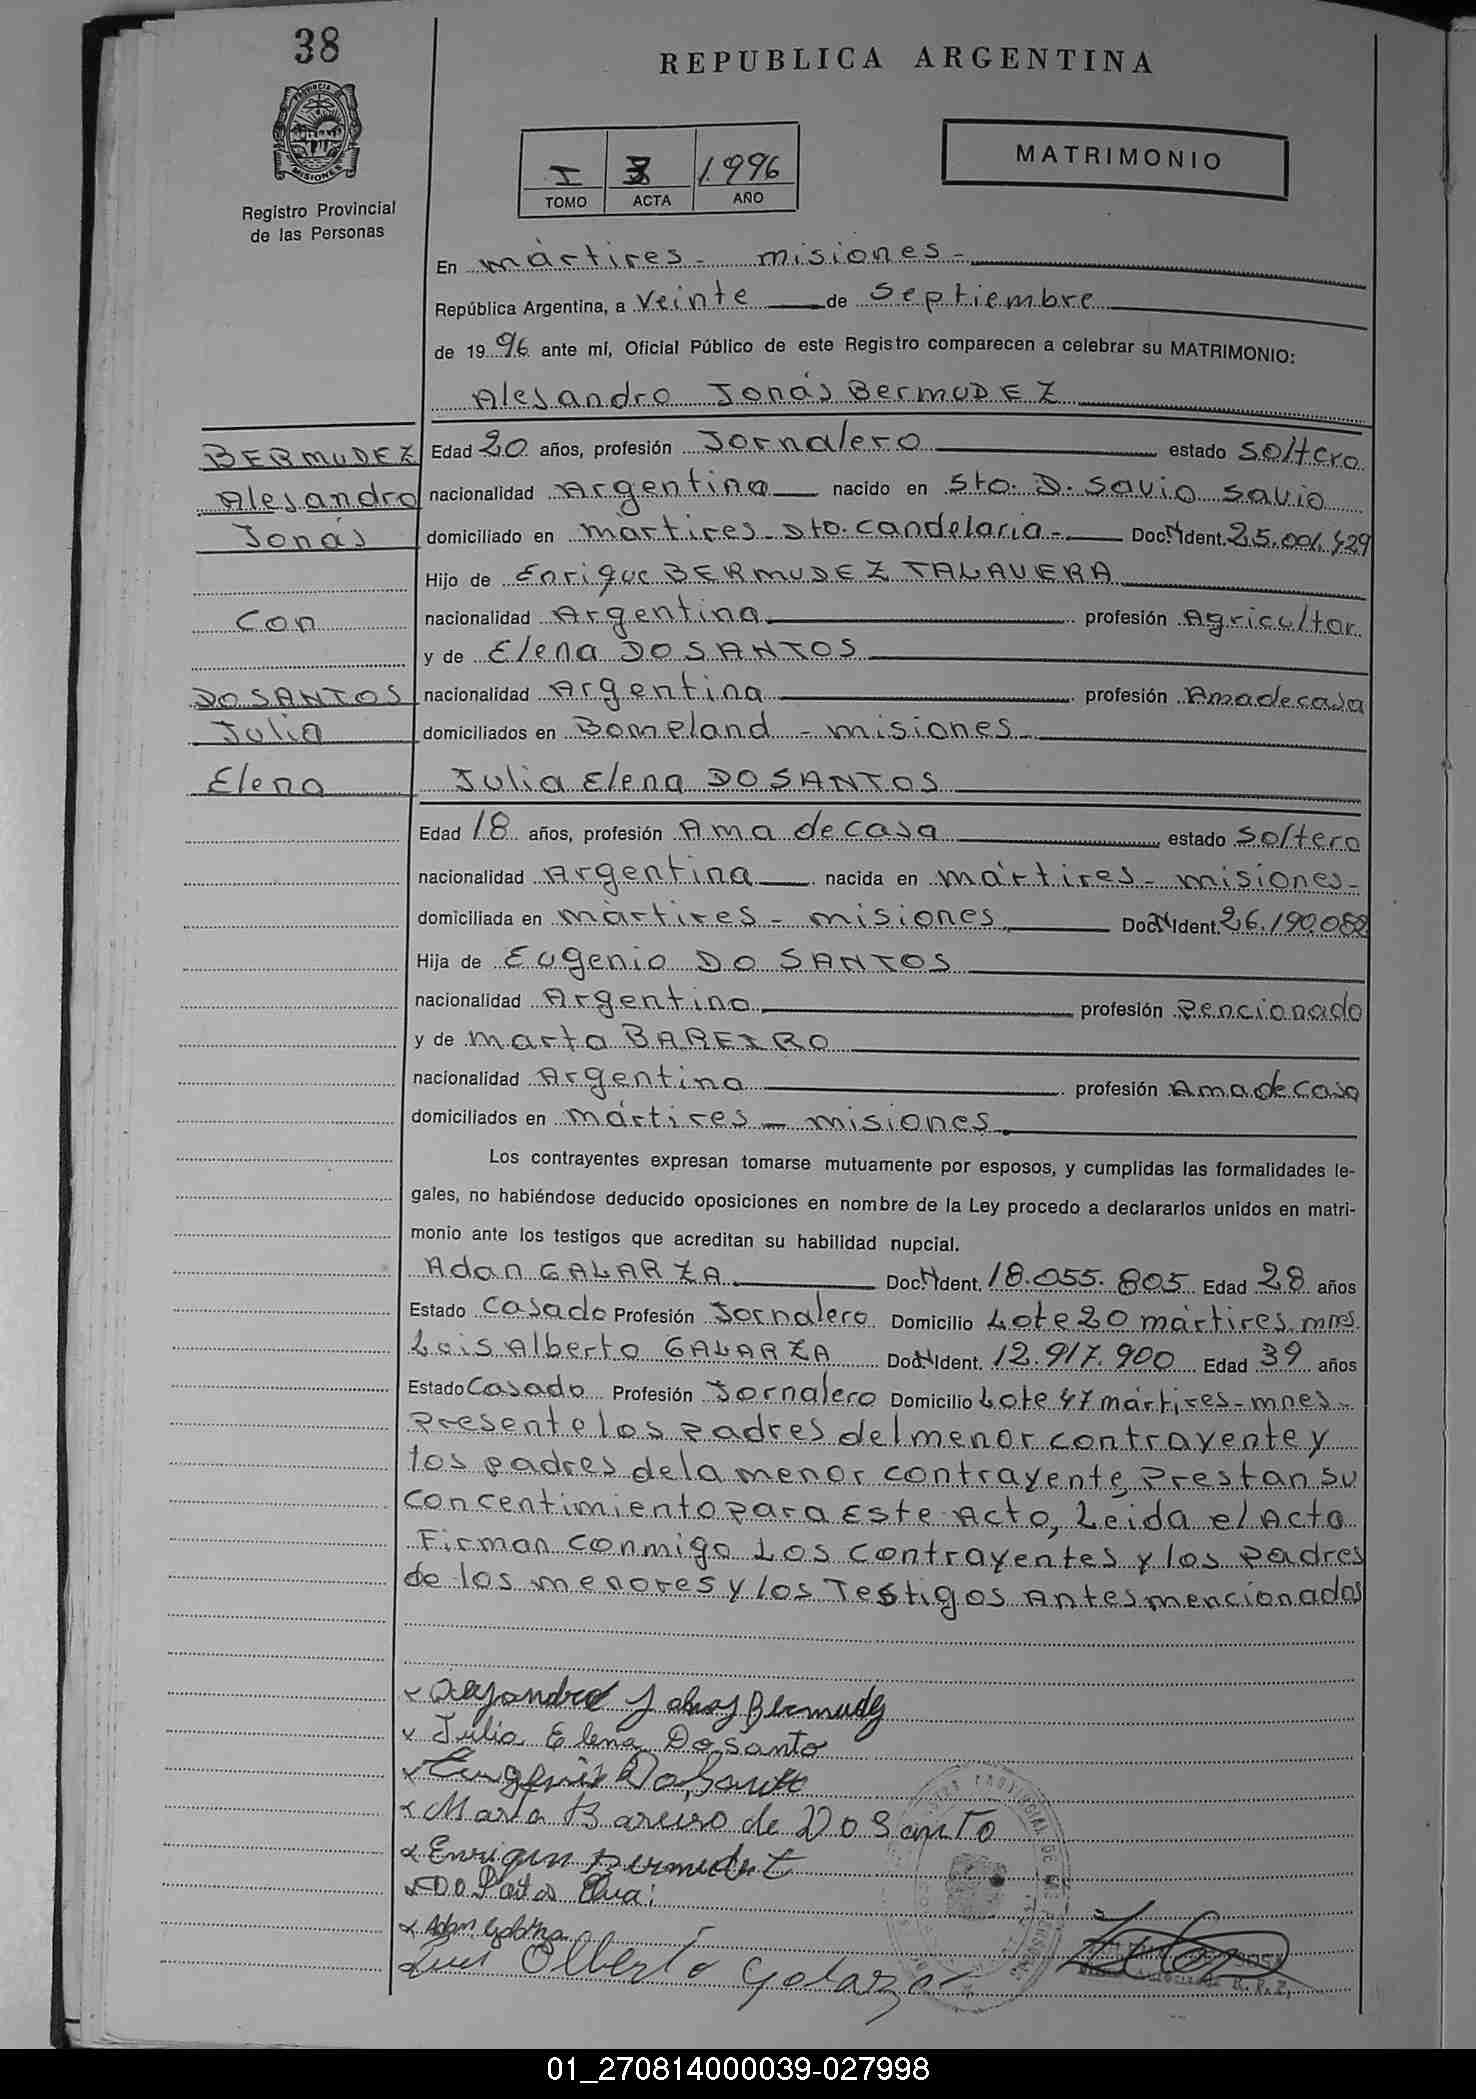 38
REPUBLICA ARGENTINA
PROVINCIA DE
MISIONES
Registro Provincial
de las Personas
I 3 1996
TOMO ACTA AÑO
MATRIMONIO
En mártires - misiones -
República Argentina, a Veinte de Septiembre
de 1996 ante mí, Oficial Público de este Registro comparecen a celebrar su MATRIMONIO:
Alejandro Jonás BermuDEZ
BERMUDEZ
Alejandro
Jonás
Con
DOSANTOS
Julia
Elena
Edad 20 años, profesión Jornalero estado Soltero
nacionalidad Argentina nacido en Sto. D. Savio Savio
domiciliado en mártires - Dto. candelaria - Doc. N Ident. 25.001.429
Hijo de Enrique BERMUDEZ TALAVERA
nacionalidad Argentina profesión Agricultor
y de Elena DOSANTOS
nacionalidad Argentina profesión Amadecasa
domiciliados en Bomeland - misiones -
Julia Elena DOSANTOS
Edad 18 años, profesión Ama decasa estado Soltero
nacionalidad Argentina nacida en mártires - misiones -
domiciliada en mártires - misiones Doc. N Ident. 26.190.082
Hija de Eugenio DO SANTOS
nacionalidad Argentino profesión Pencionado
y de Marta BAREIRO
nacionalidad Argentina profesión Amadecasa
domiciliados en mártires - misiones.
Los contrayentes expresan tomarse mutuamente por esposos, y cumplidas las formalidades le-
gales, no habiéndose deducido oposiciones en nombre de la Ley procedo a declararlos unidos en matri-
monio ante los testigos que acreditan su habilidad nupcial.
Adan GALARZA Doc. N Ident. 18.055.805 Edad 28 años
Estado Casado Profesión Jornalero Domicilio Lote 20 mártires. mnes.
Luis Alberto GALARZA Doc. N Ident. 12.917.900 Edad 39 años
Estado Casado Profesión Jornalero Domicilio Lote 47 mártires - mnes -
Presente los padres del menor contrayente y
los padres dela menor contrayente, Prestan su
Concentimiento para Este Acto, Leida el Acta
Firman conmigo Los contrayentes y los padres
de los menores y los Testigos Antes mencionados
x Alejandro Jonas Bermudez
x Julia Elena Dosanto
x Eugenio Do Santo
x Marta Bareiro de Do Santo
x Enrique Bermudez
x Do
x Adan Galarza
Luis Alberto Galarza
01_270814000039-027998